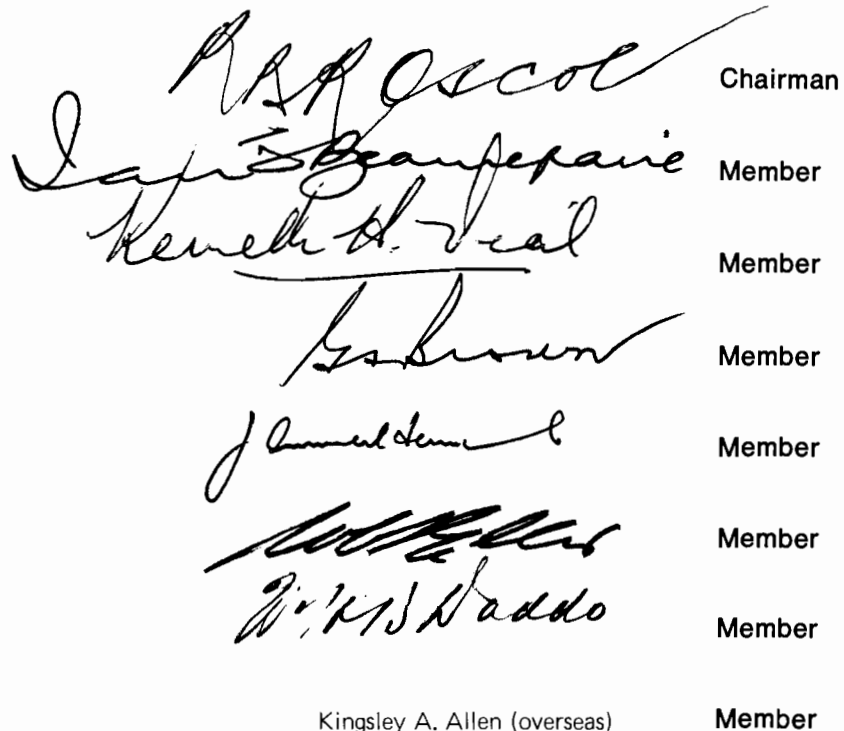 R R Roscoe Chairman
Ian F Beaurepaire Member
Kenneth H. Vial Member
G S Brown Member
J Member
Member
Haddo Member
Kingsley A. Allen (overseas) Member